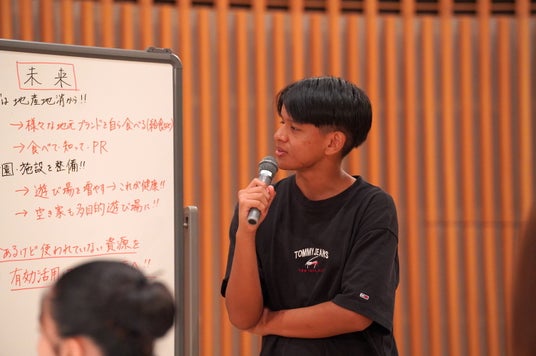 未来
は 地産地消から!!
→様々な地元ブランドを自ら食べる(給食など)
→食べて・知って・PR
園・施設を整備!!
→遊び場を増やす→これが健康!!
→空き家も多目的遊び場に!!
あるけど使われていない資源を
有効活用
TOMMY JEANS